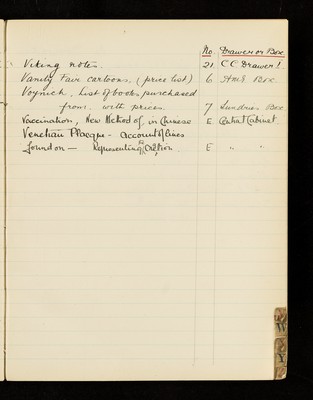 No. Drawer or Box
Viking notes. 21. C C Drawer 1
Vanity Fair cartoons, (price list) 6 Box
Voynich, List of books purchased
from. with prices. 7 Sundries Box
Vaccination, New Method of, in Chinese E. Central Cabinet
Venetian Plaque - account of lines
found on — Representing E " "
W
Y